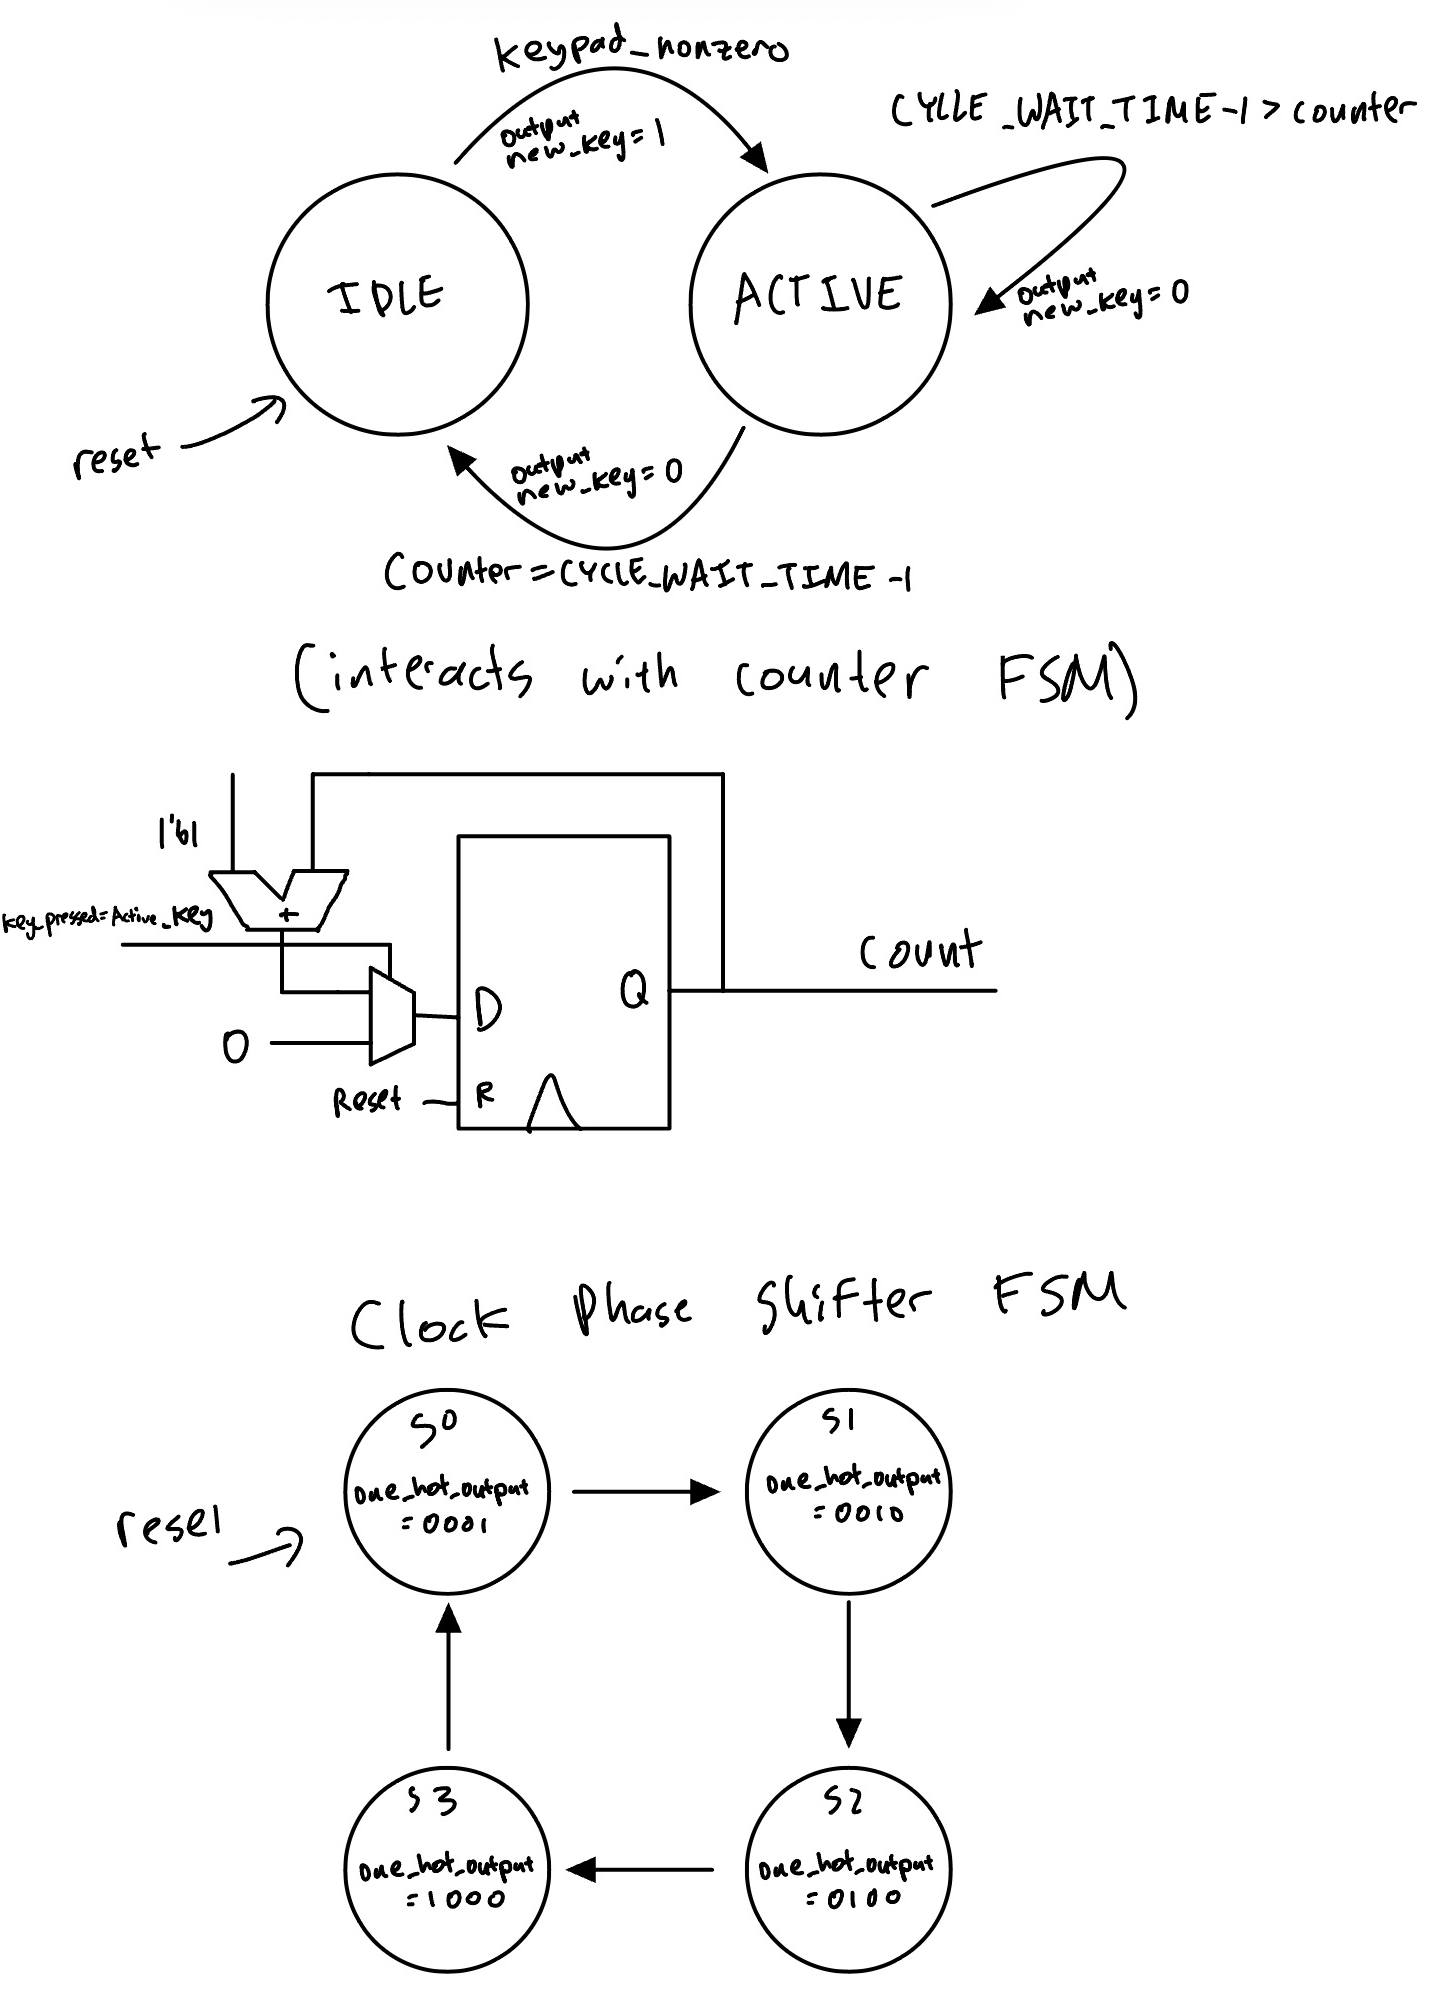 keypad_nonzero
output
new_key=1
CYCLE_WAIT_TIME-1 > counter
IDLE
ACTIVE
output
new_key=0
reset
output
new_key=0
Counter=CYCLE_WAIT_TIME-1
(interacts with counter FSM)
1'b1
+
key_pressed=Active_key
Count
Q
D
0
Reset
R
Clock Phase Shifter FSM
S0
one_hot_output
=0001
S1
one_hot_output
=0010
reset
S3
one_hot_output
=1000
S2
one_hot_output
=0100